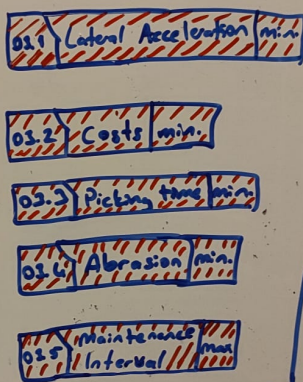 03.1 Lateral Acceleration min.
03.2 Costs min.
03.3 Picking time min.
03.4 Abrasion min.
03.5 Maintenance
Interval max